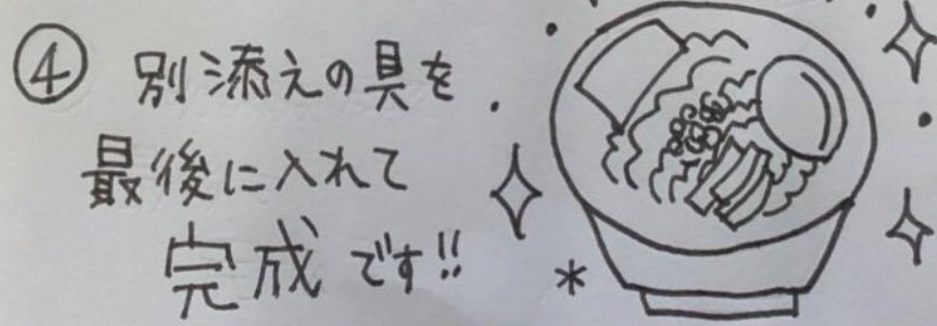 ④ 別添えの具を
最後に入れて
完成です!!